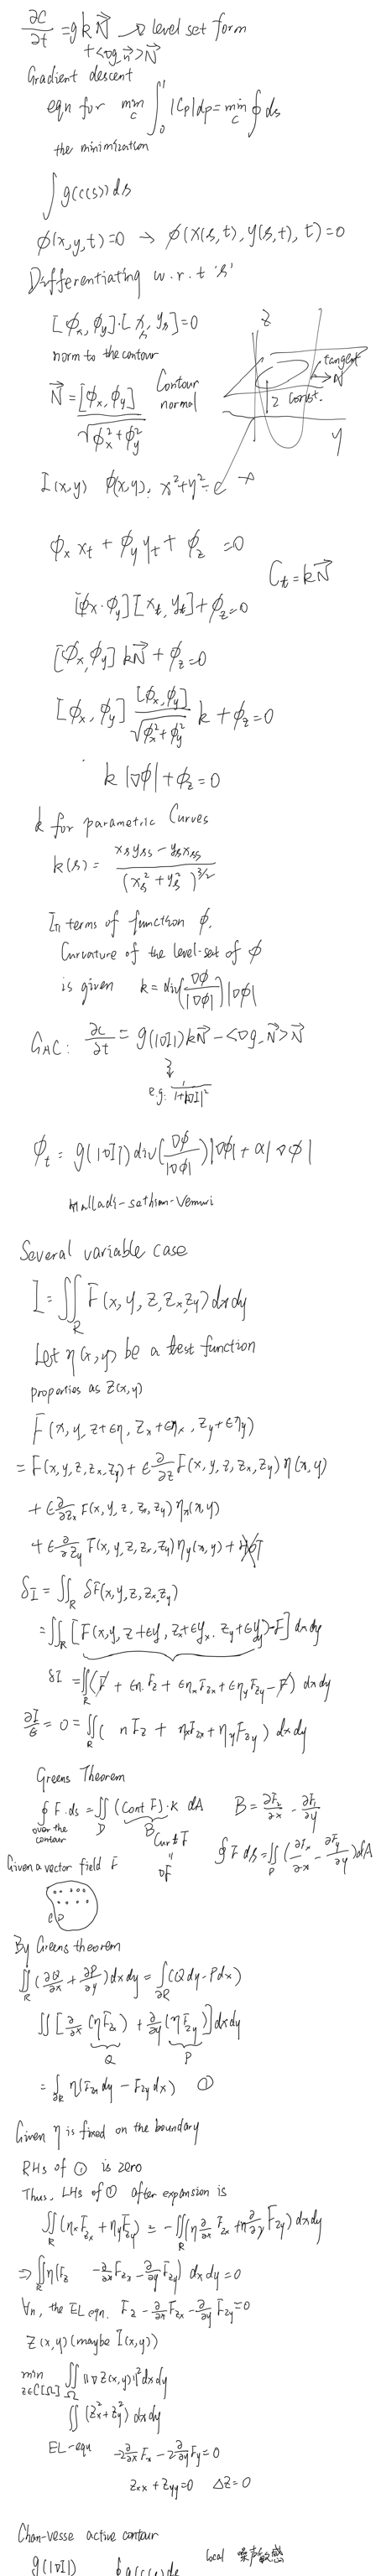 ∂C/∂t = gkN⃗ → level set form
+<∇g, n⃗>N⃗
Gradient descent
eqn for min_C ∫₀¹ |Cp|dp = min_C ∮ ds
the minimization
∫ g(c(s)) ds
ϕ(x,y,t)=0 → ϕ(x(s,t), y(s,t), t)=0
Differentiating w.r.t 's'
[ϕx, ϕy]·[xs, ys]=0
norm to the contour
N⃗ = [ϕx, ϕy] / √(ϕx²+ϕy²)
Contour
normal
z
tangent
N
z const.
y
x
I(x,y) ϕ(x,y): x²+y²=c
ϕx xt + ϕy yt + ϕz = 0
Ct = kN⃗
[ϕx·ϕy][xt, yt]+ϕz=0
[ϕx, ϕy] kN⃗ + ϕz=0
[ϕx, ϕy] [ϕx, ϕy]/√(ϕx²+ϕy²) k + ϕz=0
k|∇ϕ| + ϕz = 0
k for parametric Curves
k(s) = (xs yss − ys xss) / (xs² + ys²)^3/2
In terms of function ϕ.
Curvature of the level-set of ϕ
is given k = div(∇ϕ/|∇ϕ|)|∇ϕ|
GAC: ∂c/∂t = g(|∇I|)kN⃗ − <∇g, N⃗>N⃗
e.g. 1/(1+|∇I|²)
ϕt = g(|∇I|) div(∇ϕ/|∇ϕ|)|∇ϕ| + α|∇ϕ|
Malladi-sethian-Vemuri
Several variable case
I = ∬_R F(x, y, z, zx, zy) dx dy
Let η(x,y) be a test function
properties as z(x,y)
F(x, y, z+ϵη, zx+ϵηx, zy+ϵηy)
= F(x, y, z, zx, zy) + ϵ ∂/∂z F(x, y, z, zx, zy) η(x,y)
+ ϵ ∂/∂zx F(x, y, z, zx, zy) ηx(x,y)
+ ϵ ∂/∂zy F(x, y, z, zx, zy) ηy(x,y) + HOT
δI = ∬_R δF(x, y, z, zx, zy)
= ∬_R [F(x, y, z+ϵη, zx+ϵηx, zy+ϵηy)−F] dx dy
δI = ∬_R (F + ϵη Fz + ϵηx Fzx + ϵηy Fzy − F) dx dy
∂I/ϵ = 0 = ∬_R ( η Fz + ηx Fzx + ηy Fzy ) dx dy
Greens Theorem
∮ F·ds = ∬_D (Cont F)·K dA B = ∂F₂/∂x − ∂F₁/∂y
over the
contour
B
Curl F
∮ F ds = ∬_D (∂Fx/∂x − ∂Fy/∂y) dA
Given a vector field F
∇F
C D
By Greens theorem
∬_R (∂Q/∂x + ∂P/∂y) dx dy = ∫_∂R (Q dy − P dx)
∬ [∂/∂x (η Fzx) + ∂/∂y (η Fzy)] dx dy
Q P
= ∫_∂R η(Fzx dy − Fzy dx) ①
Given η is fixed on the boundary
RHs of ① is zero
Thus, LHs of ① after expansion is
∬_R (ηx Fzx + ηy Fzy) = −∬_R (η ∂/∂x Fzx + η ∂/∂y Fzy) dx dy
⇒ ∬_R η(Fz − ∂/∂x Fzx − ∂/∂y Fzy) dx dy = 0
∀η, the EL eqn. Fz − ∂/∂x Fzx − ∂/∂y Fzy = 0
z(x,y) (maybe I(x,y))
min_{z∈C[Ω]} ∬_Ω ||∇z(x,y)||² dx dy
∬ (zx² + zy²) dx dy
EL-equ −2 ∂/∂x Fx − 2 ∂/∂y Fy = 0
zxx + zyy = 0 Δz = 0
Chan-vesse active contour
local 噪声敏感
g(|∇I|) ∮ g(c(s)) ds